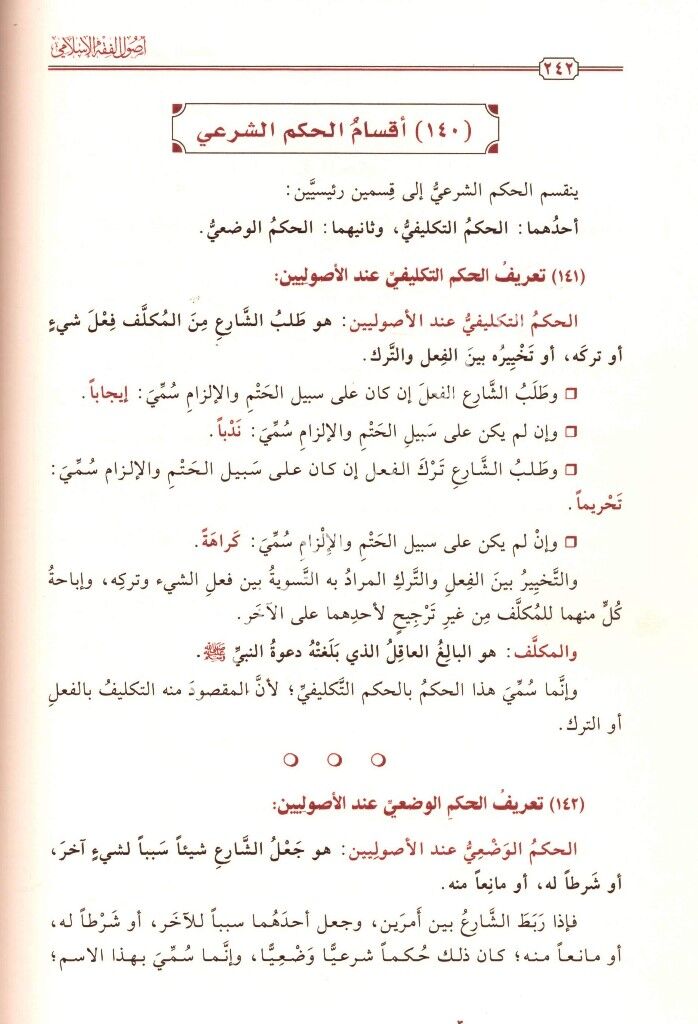 أصول الفقه الإسلامي
٢٤٢
(١٤٠) أقسامُ الحكم الشرعي
ينقسم الحكم الشرعيُّ إلى قِسمين رئيسيَّين:
أحدُهما: الحكمُ التكليفيُّ، وثانيهما: الحكمُ الوضعيُّ.
(١٤١) تعريفُ الحكم التكليفيِّ عند الأصوليين:
الحكمُ التكليفيُّ عند الأصوليين: هو طَلبُ الشَّارعِ مِنَ المُكلَّف فِعْلَ شيءٍ
أو تركَه، أو تَخْيِيرُه بينَ الفِعل والتَّرك.
❒ وطَلَبُ الشَّارِع الفعلَ إن كان على سبيل الحَتْمِ والإلزامِ سُمِّيَ: إيجاباً.
❒ وإن لم يكن على سَبيلِ الحَتْمِ والإلزامِ سُمِّيَ: نَدْباً.
❒ وطَلبُ الشَّارعِ تَرْكَ الفعل إن كان على سَبيل الحَتْمِ والإلزام سُمِّيَ:
تَحْريماً.
❒ وإنْ لم يكن على سبيل الحَتْمِ والإِلْزامِ سُمِّيَ: كَراهَةً.
والتَّخيِيرُ بينَ الفِعلِ والتَّركِ المرادُ به التَّسويةُ بين فعلِ الشيء وتركِه، وإباحةُ
كُلٍّ منهما للمُكلَّف مِن غيرِ تَرْجيحٍ لأحدِهما على الآخَر.
والمكلَّف: هو البالِغُ العاقِلُ الذي بَلَغتْهُ دعوةُ النبيِّ ﷺ.
وإنَّما سُمِّيَ هذا الحكمُ بالحكم التَّكليفيِّ؛ لأنَّ المقصودَ منه التكليفُ بالفعلِ
أو الترك.
(١٤٢) تعريفُ الحكمِ الوضعيِّ عند الأصوليين:
الحكمُ الوَضْعِيُّ عند الأصولِيين: هو جَعْلُ الشَّارعِ شيئاً سَبباً لشيءٍ آخرَ،
أو شَرطاً له، أو مانِعاً منه.
فإذا رَبَطَ الشَّارعُ بين أَمرَين، وجعل أحدَهُما سبباً للآخَر، أو شَرْطاً له،
أو مانعاً منه؛ كان ذلك حُكماً شرعيًّا وَضْعِيًّا، وإنَّما سُمِّيَ بهذا الاسم؛